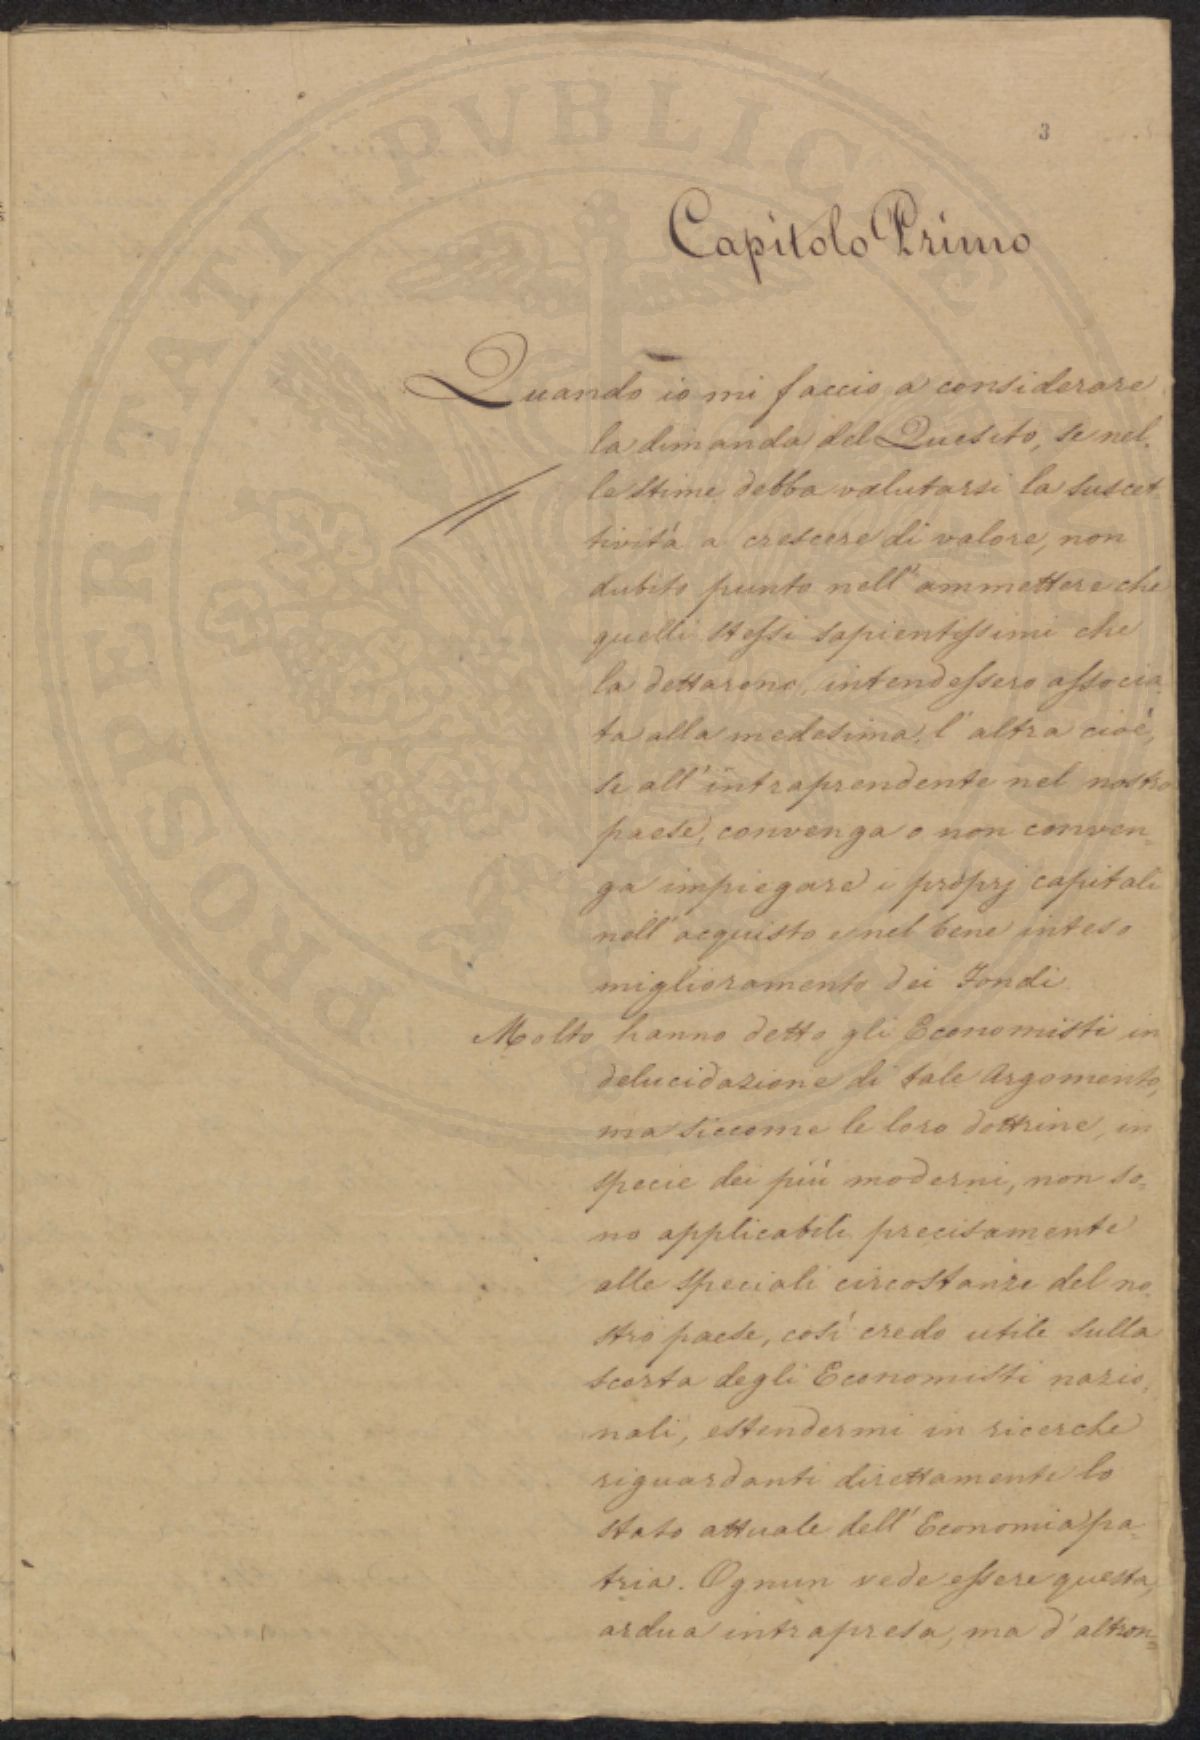 3
Capitolo Primo
Quando io mi faccio a considerare
la dimanda del Quesito, se nel-
le stime debba valutarsi la suscet
tività a crescere di valore, non
dubito punto nell'ammettere che
quelli stessi sapientissimi che
la dettarono, intendessero associa
ta alla medesima l'altra cioè,
se all'intraprendente nel nostro
paese, convenga o non conven=
ga impiegare i proprj capitali
nell'acquisto e nel bene inteso
miglioramento dei Fondi.
Molto hanno detto gli Economisti in
delucidazione di tale Argomento,
ma siccome le loro dottrine, in
specie dei più moderni, non so=
no applicabili precisamente
alle speciali circostanze del no
stro paese, così credo utile sulla
scorta degli Economisti nazio=
nali, estendermi in ricerche
riguardanti direttamente lo
stato attuale dell'Economia pa=
tria. Ognun vede essere questa,
ardua intrapresa, ma d'altron=
PROSPERITATI PVBLICAE